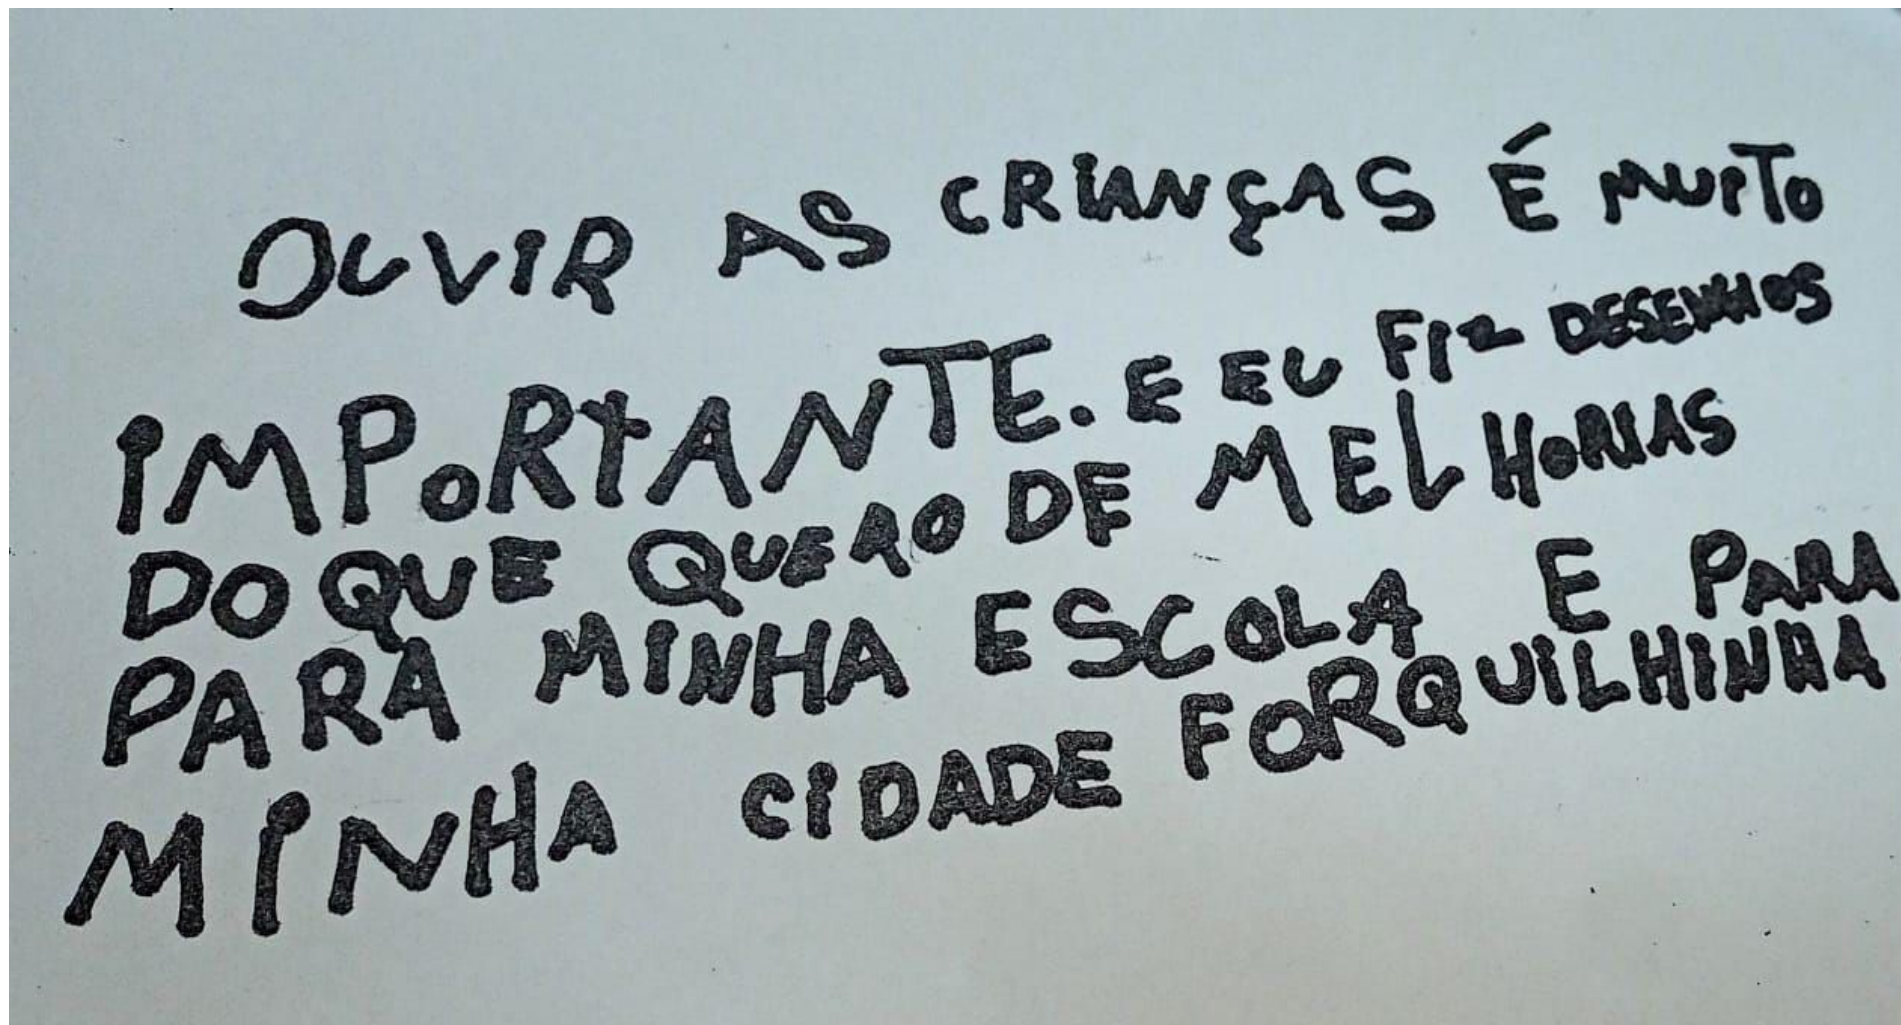 OUVIR AS CRIANÇAS É MUITO
IMPORTANTE. E EU FIZ DESENHOS
DO QUE QUERO DE MELHORIAS
PARA MINHA ESCOLA E PARA
MINHA CIDADE FORQUILHINHA